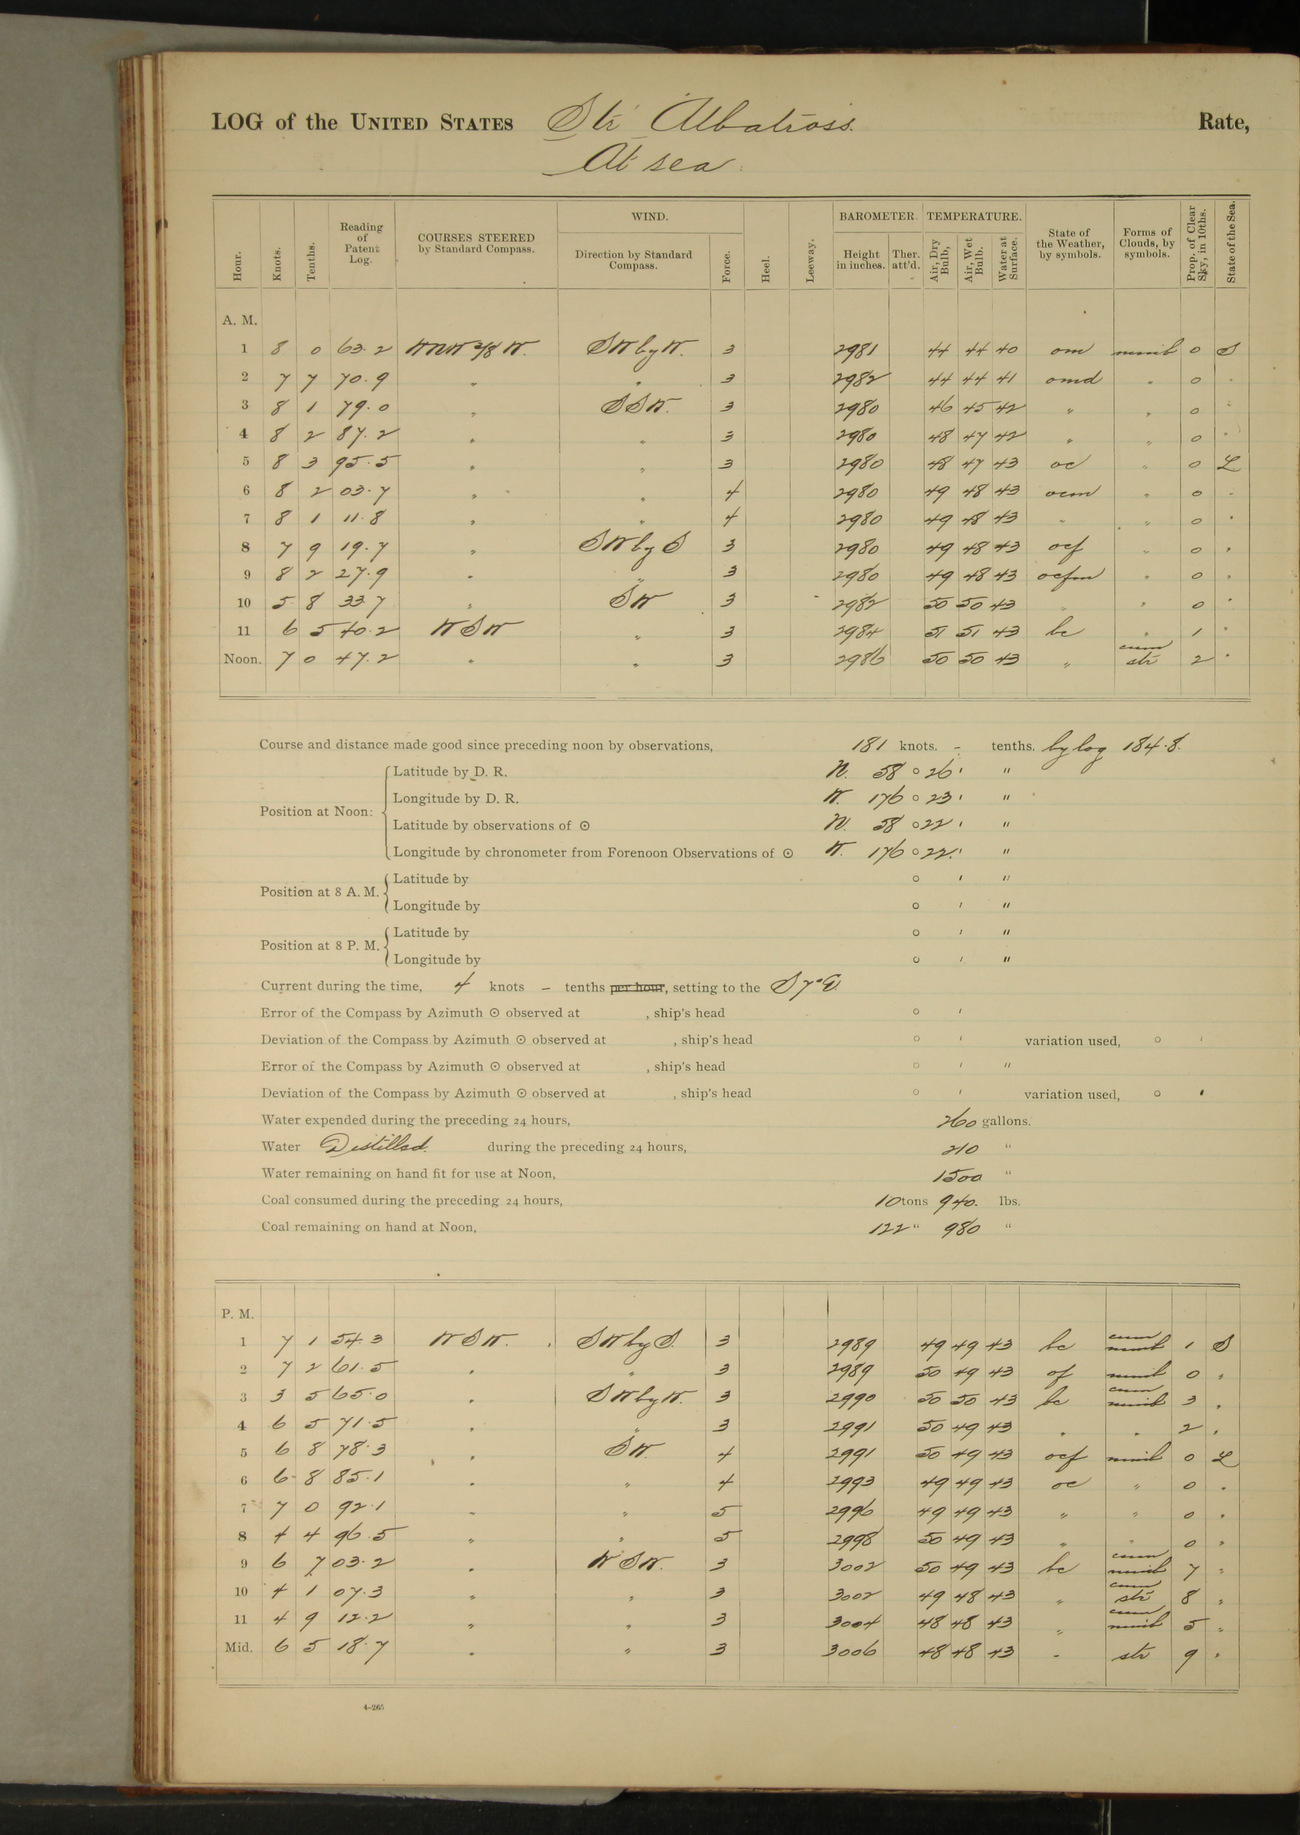 LOG of the UNITED STATES Str Albatross. Rate,
At sea.
Hour. Knots. Tenths. Reading of Patent Log. COURSES STEERED by Standard Compass. WIND. Direction by Standard Compass. Force. Heel. Leeway. BAROMETER. Height in inches. Ther. att'd. TEMPERATURE. Air, Dry Bulb, Air, Wet Bulb. Water at Surface. State of the Weather, by symbols. Forms of Clouds, by symbols. Prop. of Clear Sky, in 10ths. State of the Sea.
A. M.
1 8 0 63.2 WNW 3/8 W. SW by W. 3 2981 44 44 40 om nimb 0 S
2 7 7 70.9 " " 3 2982 44 44 41 omd " 0 "
3 8 1 79.0 " SSW. 3 2980 46 45 42 " " 0 "
4 8 2 87.2 " " 3 2980 48 47 42 " " 0 "
5 8 3 95.5 " " 3 2980 48 47 43 oc " 0 L
6 8 2 03.7 " " 4 2980 49 48 43 ocm " 0 "
7 8 1 11.8 " " 4 2980 49 48 43 " " 0 "
8 7 9 19.7 " SW by S 3 2980 49 48 43 ocf " 0 "
9 8 2 27.9 " " 3 2980 49 48 43 ocfm " 0 "
10 5 8 33.7 " SW 3 2982 50 50 43 " " 0 "
11 6 5 40.2 WSW " 3 2984 51 51 43 bc " 1 "
Noon. 7 0 47.2 " " 3 2986 50 50 43 " cum str 2 "
Course and distance made good since preceding noon by observations, 181 knots. - tenths. by log 184.8.
Position at Noon: Latitude by D. R. N. 58 ° 26 ' "
Longitude by D. R. W. 176 ° 23 ' "
Latitude by observations of ☉ N. 58 ° 22 ' "
Longitude by chronometer from Forenoon Observations of ☉ W. 176 ° 22 ' "
Position at 8 A. M. Latitude by ° ' "
Longitude by ° ' "
Position at 8 P. M. Latitude by ° ' "
Longitude by ° ' "
Current during the time, 4 knots - tenths per hour, setting to the S 7° E
Error of the Compass by Azimuth ☉ observed at , ship's head ° '
Deviation of the Compass by Azimuth ☉ observed at , ship's head ° ' variation used, ° '
Error of the Compass by Azimuth ☉ observed at , ship's head ° ' "
Deviation of the Compass by Azimuth ☉ observed at , ship's head ° ' variation used, ° '
Water expended during the preceding 24 hours, 260 gallons.
Water Distilled. during the preceding 24 hours, 210 "
Water remaining on hand fit for use at Noon, 1500 "
Coal consumed during the preceding 24 hours, 10 tons 940. lbs.
Coal remaining on hand at Noon, 122 " 980 "
P. M.
1 7 1 54.3 WSW. SW by S. 3 2989 49 49 43 bc cum nimb 1 S
2 7 2 61.5 " " 3 2989 50 49 43 of nimb 0 "
3 3 5 65.0 " SW by W. 3 2990 50 50 43 bc cum nimb 3 "
4 6 5 71.5 " " 3 2991 50 49 43 " " 2 "
5 6 8 78.3 " SW. 4 2991 50 49 43 ocf nimb 0 L
6 6 8 85.1 " " 4 2993 49 49 43 oc " 0 "
7 7 0 92.1 " " 5 2996 49 49 43 " " 0 "
8 4 4 96.5 " " 5 2998 50 49 43 " " 0 "
9 6 7 03.2 " WSW. 3 3002 50 49 43 bc cum nimb 7 "
10 4 1 07.3 " " 3 3002 49 48 43 " cum str 8 "
11 4 9 12.2 " " 3 3004 48 48 43 " cum nimb 5 "
Mid. 6 5 18.7 " " 3 3006 48 48 43 " str 9 "
4-265